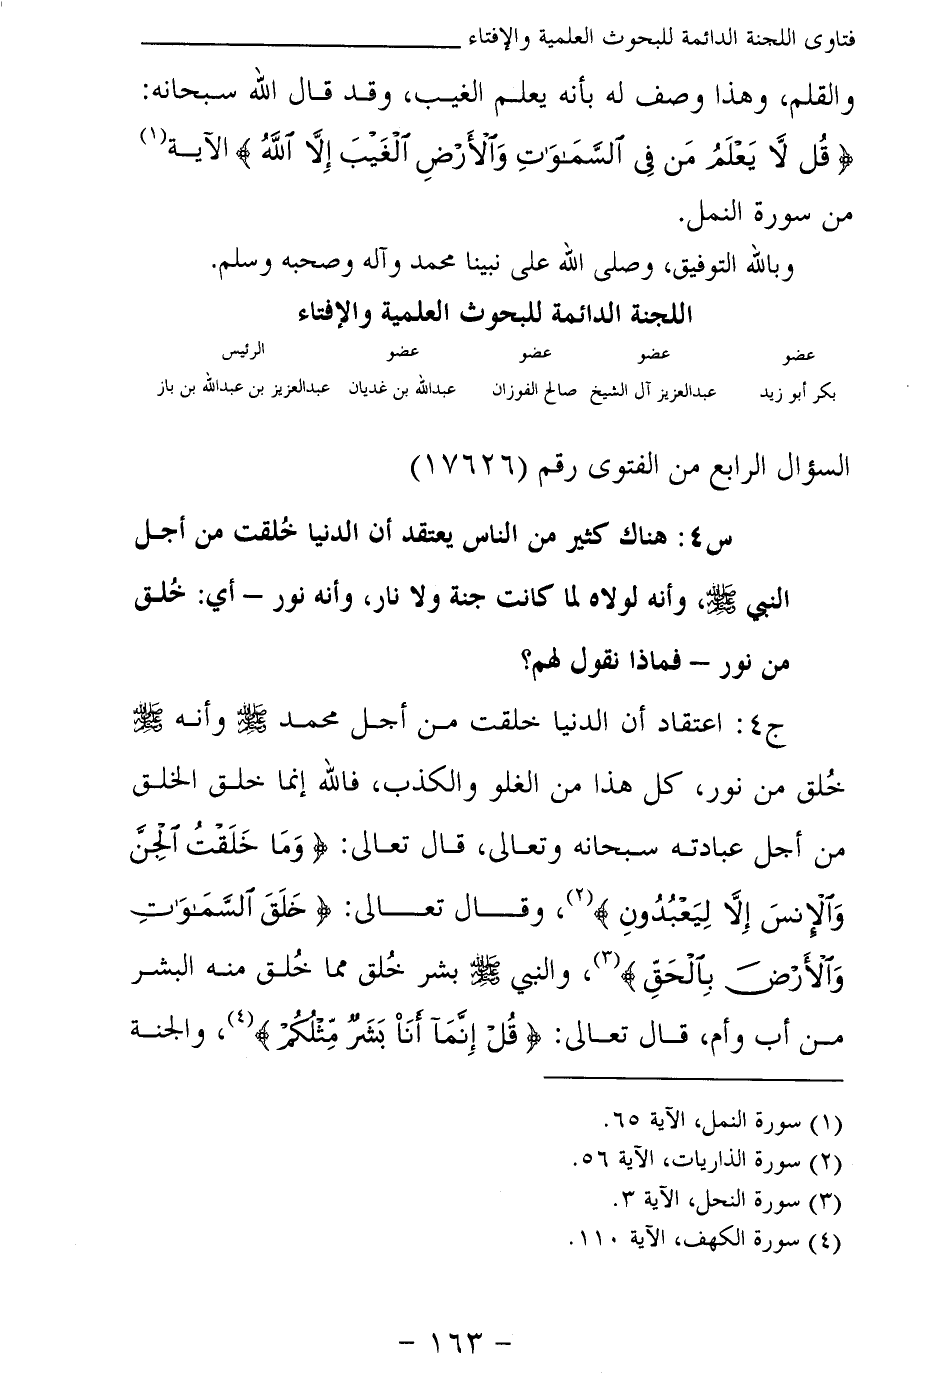 فتاوى اللجنة الدائمة للبحوث العلمية والإفتاء
والقلم، وهذا وصف له بأنه يعلم الغيب، وقد قال الله سبحانه:
﴿ قُل لَّا يَعْلَمُ مَن فِى ٱلسَّمَـٰوَٰتِ وَٱلْأَرْضِ ٱلْغَيْبَ إِلَّا ٱللَّهُ ﴾ الآية(١)
من سورة النمل.
وبالله التوفيق، وصلى الله على نبينا محمد وآله وصحبه وسلم.
اللجنة الدائمة للبحوث العلمية والإفتاء
عضو عضو عضو عضو الرئيس
بكر أبو زيد عبدالعزيز آل الشيخ صالح الفوزان عبدالله بن غديان عبدالعزيز بن عبدالله بن باز
السؤال الرابع من الفتوى رقم (١٧٦٢٦)
س٤: هناك كثير من الناس يعتقد أن الدنيا خُلقت من أجل
النبي ﷺ، وأنه لولاه لما كانت جنة ولا نار، وأنه نور – أي: خُلق
من نور – فماذا نقول لهم؟
ج٤: اعتقاد أن الدنيا خلقت من أجل محمد ﷺ وأنه ﷺ
خُلق من نور، كل هذا من الغلو والكذب، فالله إنما خلق الخلق
من أجل عبادته سبحانه وتعالى، قال تعالى: ﴿ وَمَا خَلَقْتُ ٱلْجِنَّ
وَٱلْإِنسَ إِلَّا لِيَعْبُدُونِ ﴾(٢)، وقال تعالى: ﴿ خَلَقَ ٱلسَّمَـٰوَٰتِ
وَٱلْأَرْضَ بِٱلْحَقِّ ﴾(٣)، والنبي ﷺ بشر خُلق مما خُلق منه البشر
من أب وأم، قال تعالى: ﴿ قُلْ إِنَّمَآ أَنَا۠ بَشَرٌ مِّثْلُكُمْ ﴾(٤)، والجنة
(١) سورة النمل، الآية ٦٥.
(٢) سورة الذاريات، الآية ٥٦.
(٣) سورة النحل، الآية ٣.
(٤) سورة الكهف، الآية ١١٠.
– ١٦٣ –